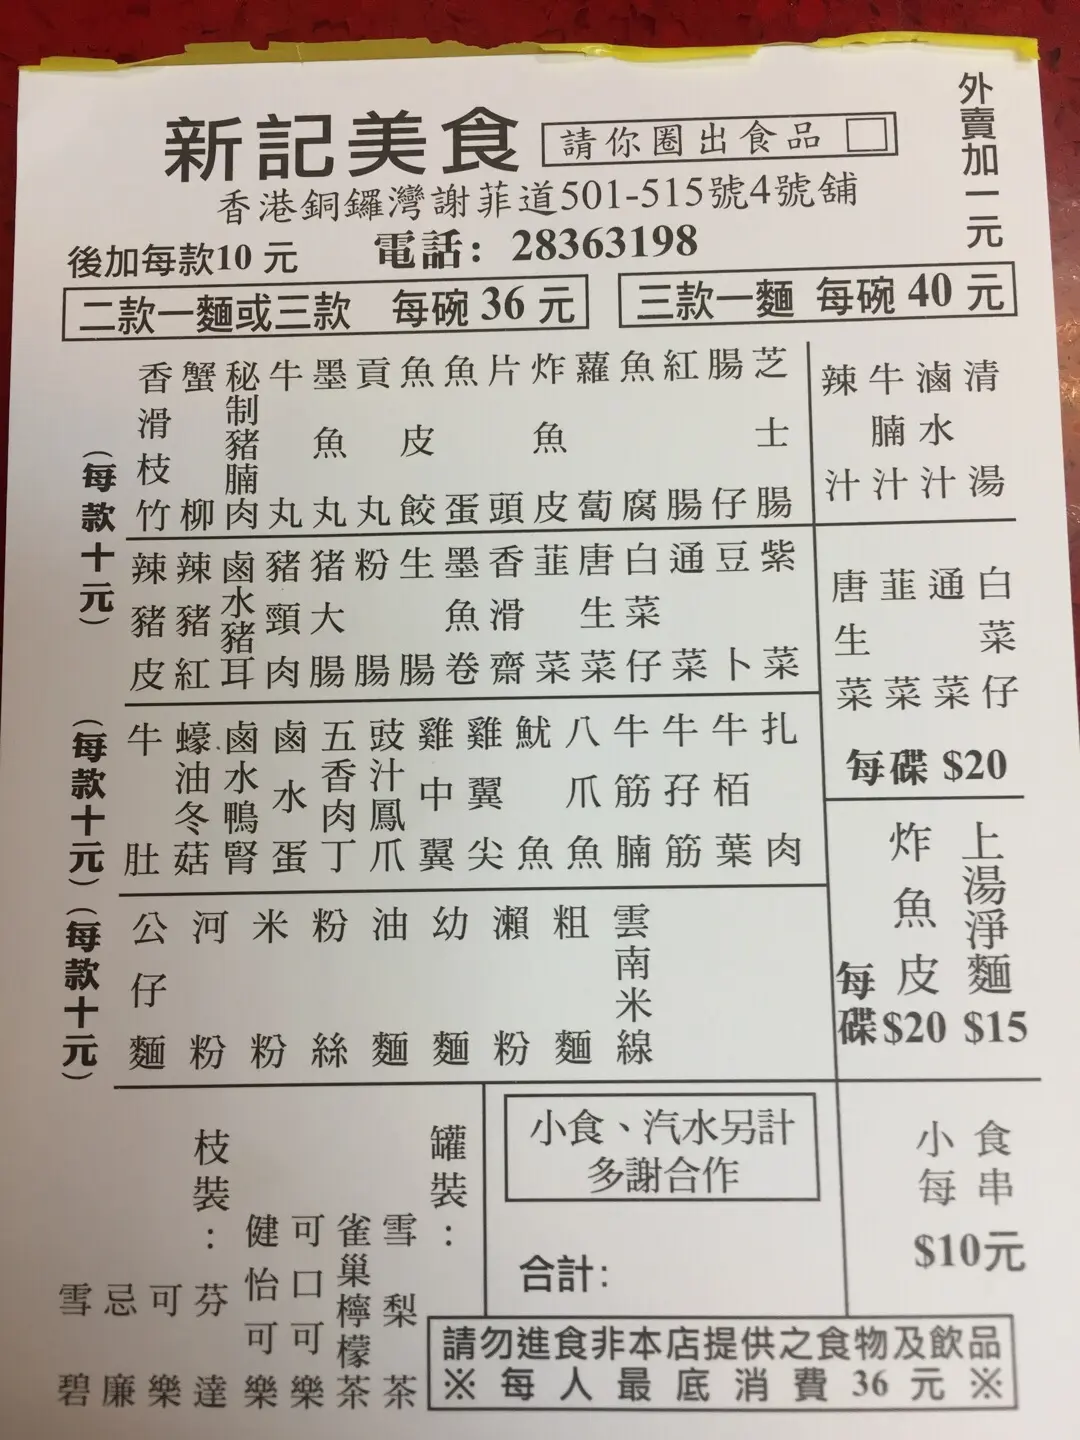 新記美食
請你圈出食品
外賣加一元
香港銅鑼灣謝菲道501-515號4號舖
後加每款10元
電話：28363198
二款一麵或三款 每碗36元
三款一麵 每碗40元
(每款十元)
香滑枝竹
蟹柳
秘制豬腩肉
牛丸
墨魚丸
貢丸
魚皮餃
魚蛋
片頭
炸魚皮
蘿蔔
魚腐
紅腸
腸仔
芝士腸
辣汁
牛腩汁
滷水汁
清湯
辣豬皮
辣豬紅
鹵水豬耳
豬頸肉
猪大腸
粉腸
生腸
墨魚卷
香滑齋
韮菜
唐生菜
白菜仔
通菜
豆卜
紫菜
唐生菜
韮菜
通菜
白菜仔
每碟 $20
(每款十元)
牛肚
蠔油冬菇
鹵水鴨腎
鹵水蛋
五香肉丁
豉汁鳳爪
雞中翼
雞翼尖
魷魚
八爪魚
牛筋腩
牛孖筋
牛栢葉
扎肉
炸魚皮
每碟$20
上湯淨麵
$15
(每款十元)
公仔麵
河粉
米粉
粉絲
油麵
幼麵
瀨粉
粗麵
雲南米線
枝裝：
雪碧
忌廉
可樂
芬達
罐裝：
健怡可樂
可口可樂
雀巢檸檬茶
雪梨茶
小食、汽水另計
多謝合作
合計：
小食每串
$10元
請勿進食非本店提供之食物及飲品
※每人最底消費36元※